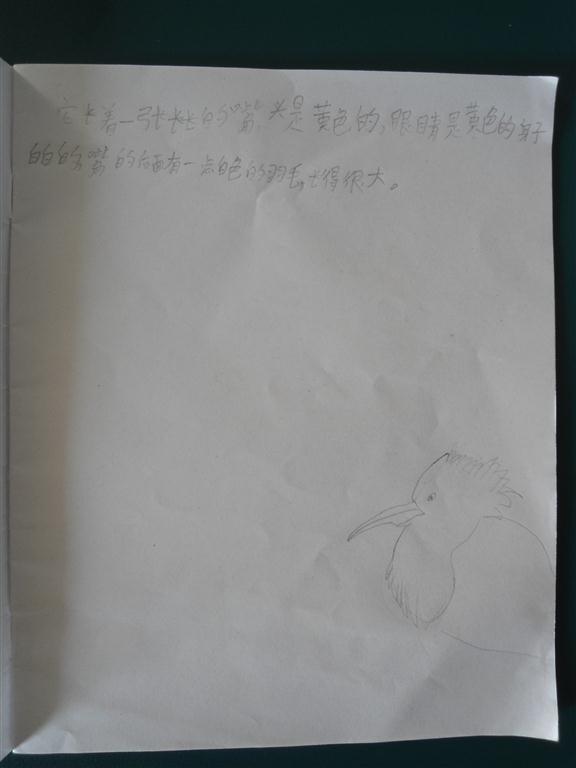 它长着一张长长的嘴,头是黄色的,眼睛是黄色的身子
白白的嘴的后面有一点白色的羽毛,长得很大。